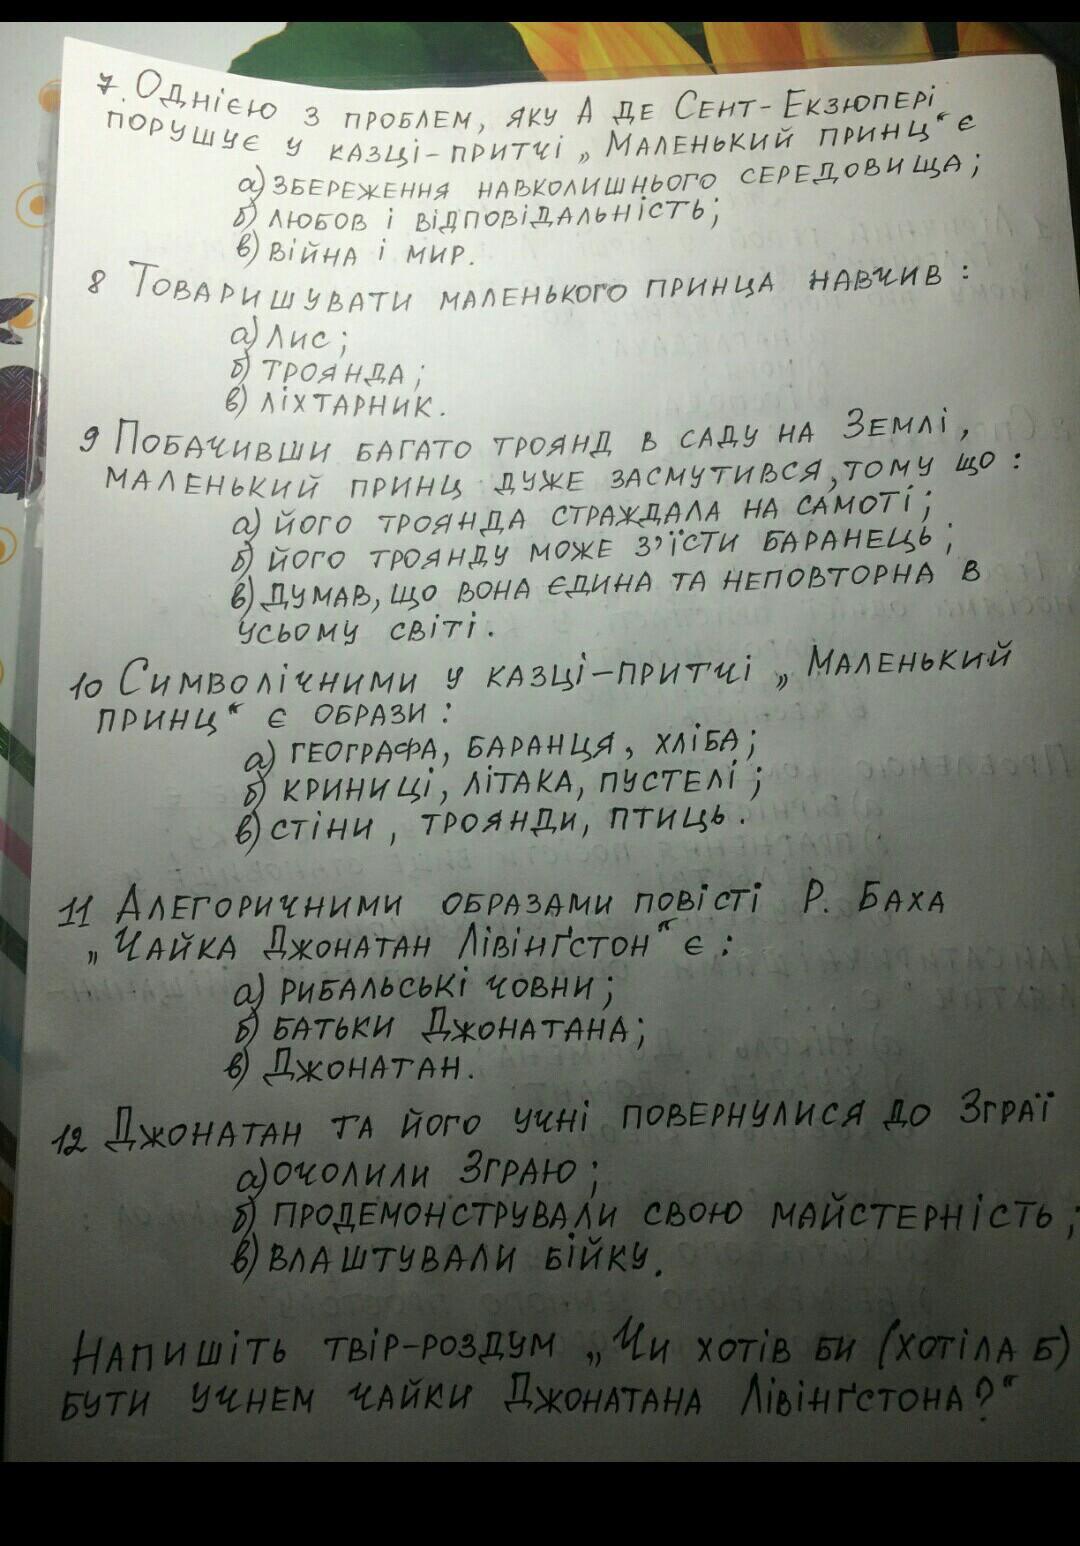 7. Однією з проблем, яку А де Сент-Екзюпері
порушує у казці-притчі „Маленький принц“ є
а) збереження навколишнього середовища;
б) любов і відповідальність;
в) війна і мир.
8 Товаришувати маленького принца навчив:
а) Лис;
б) троянда;
в) ліхтарник.
9 Побачивши багато троянд в саду на Землі,
маленький принц дуже засмутився, тому що:
а) його троянда страждала на самоті;
б) його троянду може з’їсти баранець;
в) думав, що вона єдина та неповторна в
усьому світі.
10 Символічними у казці-притчі „Маленький
принц“ є образи:
а) географа, баранця, хліба;
б) криниці, літака, пустелі;
в) стіни, троянди, птиць.
11 Алегоричними образами повісті Р. Баха
„Чайка Джонатан Лівінґстон“ є:
а) рибальські човни;
б) батьки Джонатана;
в) Джонатан.
12 Джонатан та його учні повернулися до Зграї
а) очолили Зграю;
б) продемонстрували свою майстерність;
в) влаштували бійку.
Напишіть твір-роздум „Чи хотів би (хотіла б)
бути учнем чайки Джонатана Лівінґстона?“